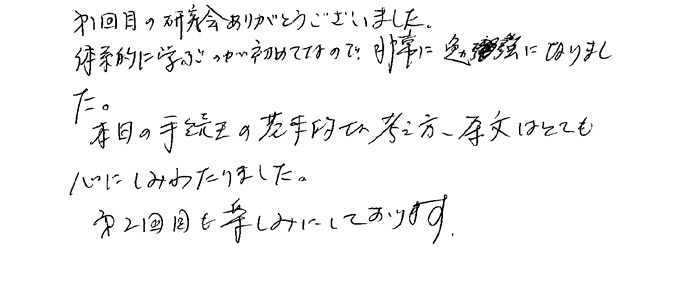 第1回目の研究会ありがとうございました。
体系的に学ぶのが初めてなので、非常に勉強になりまし
た。
本日の手続きの基本的な考え方、原文はとても
心にしみわたりました。
第2回目も楽しみにしております.